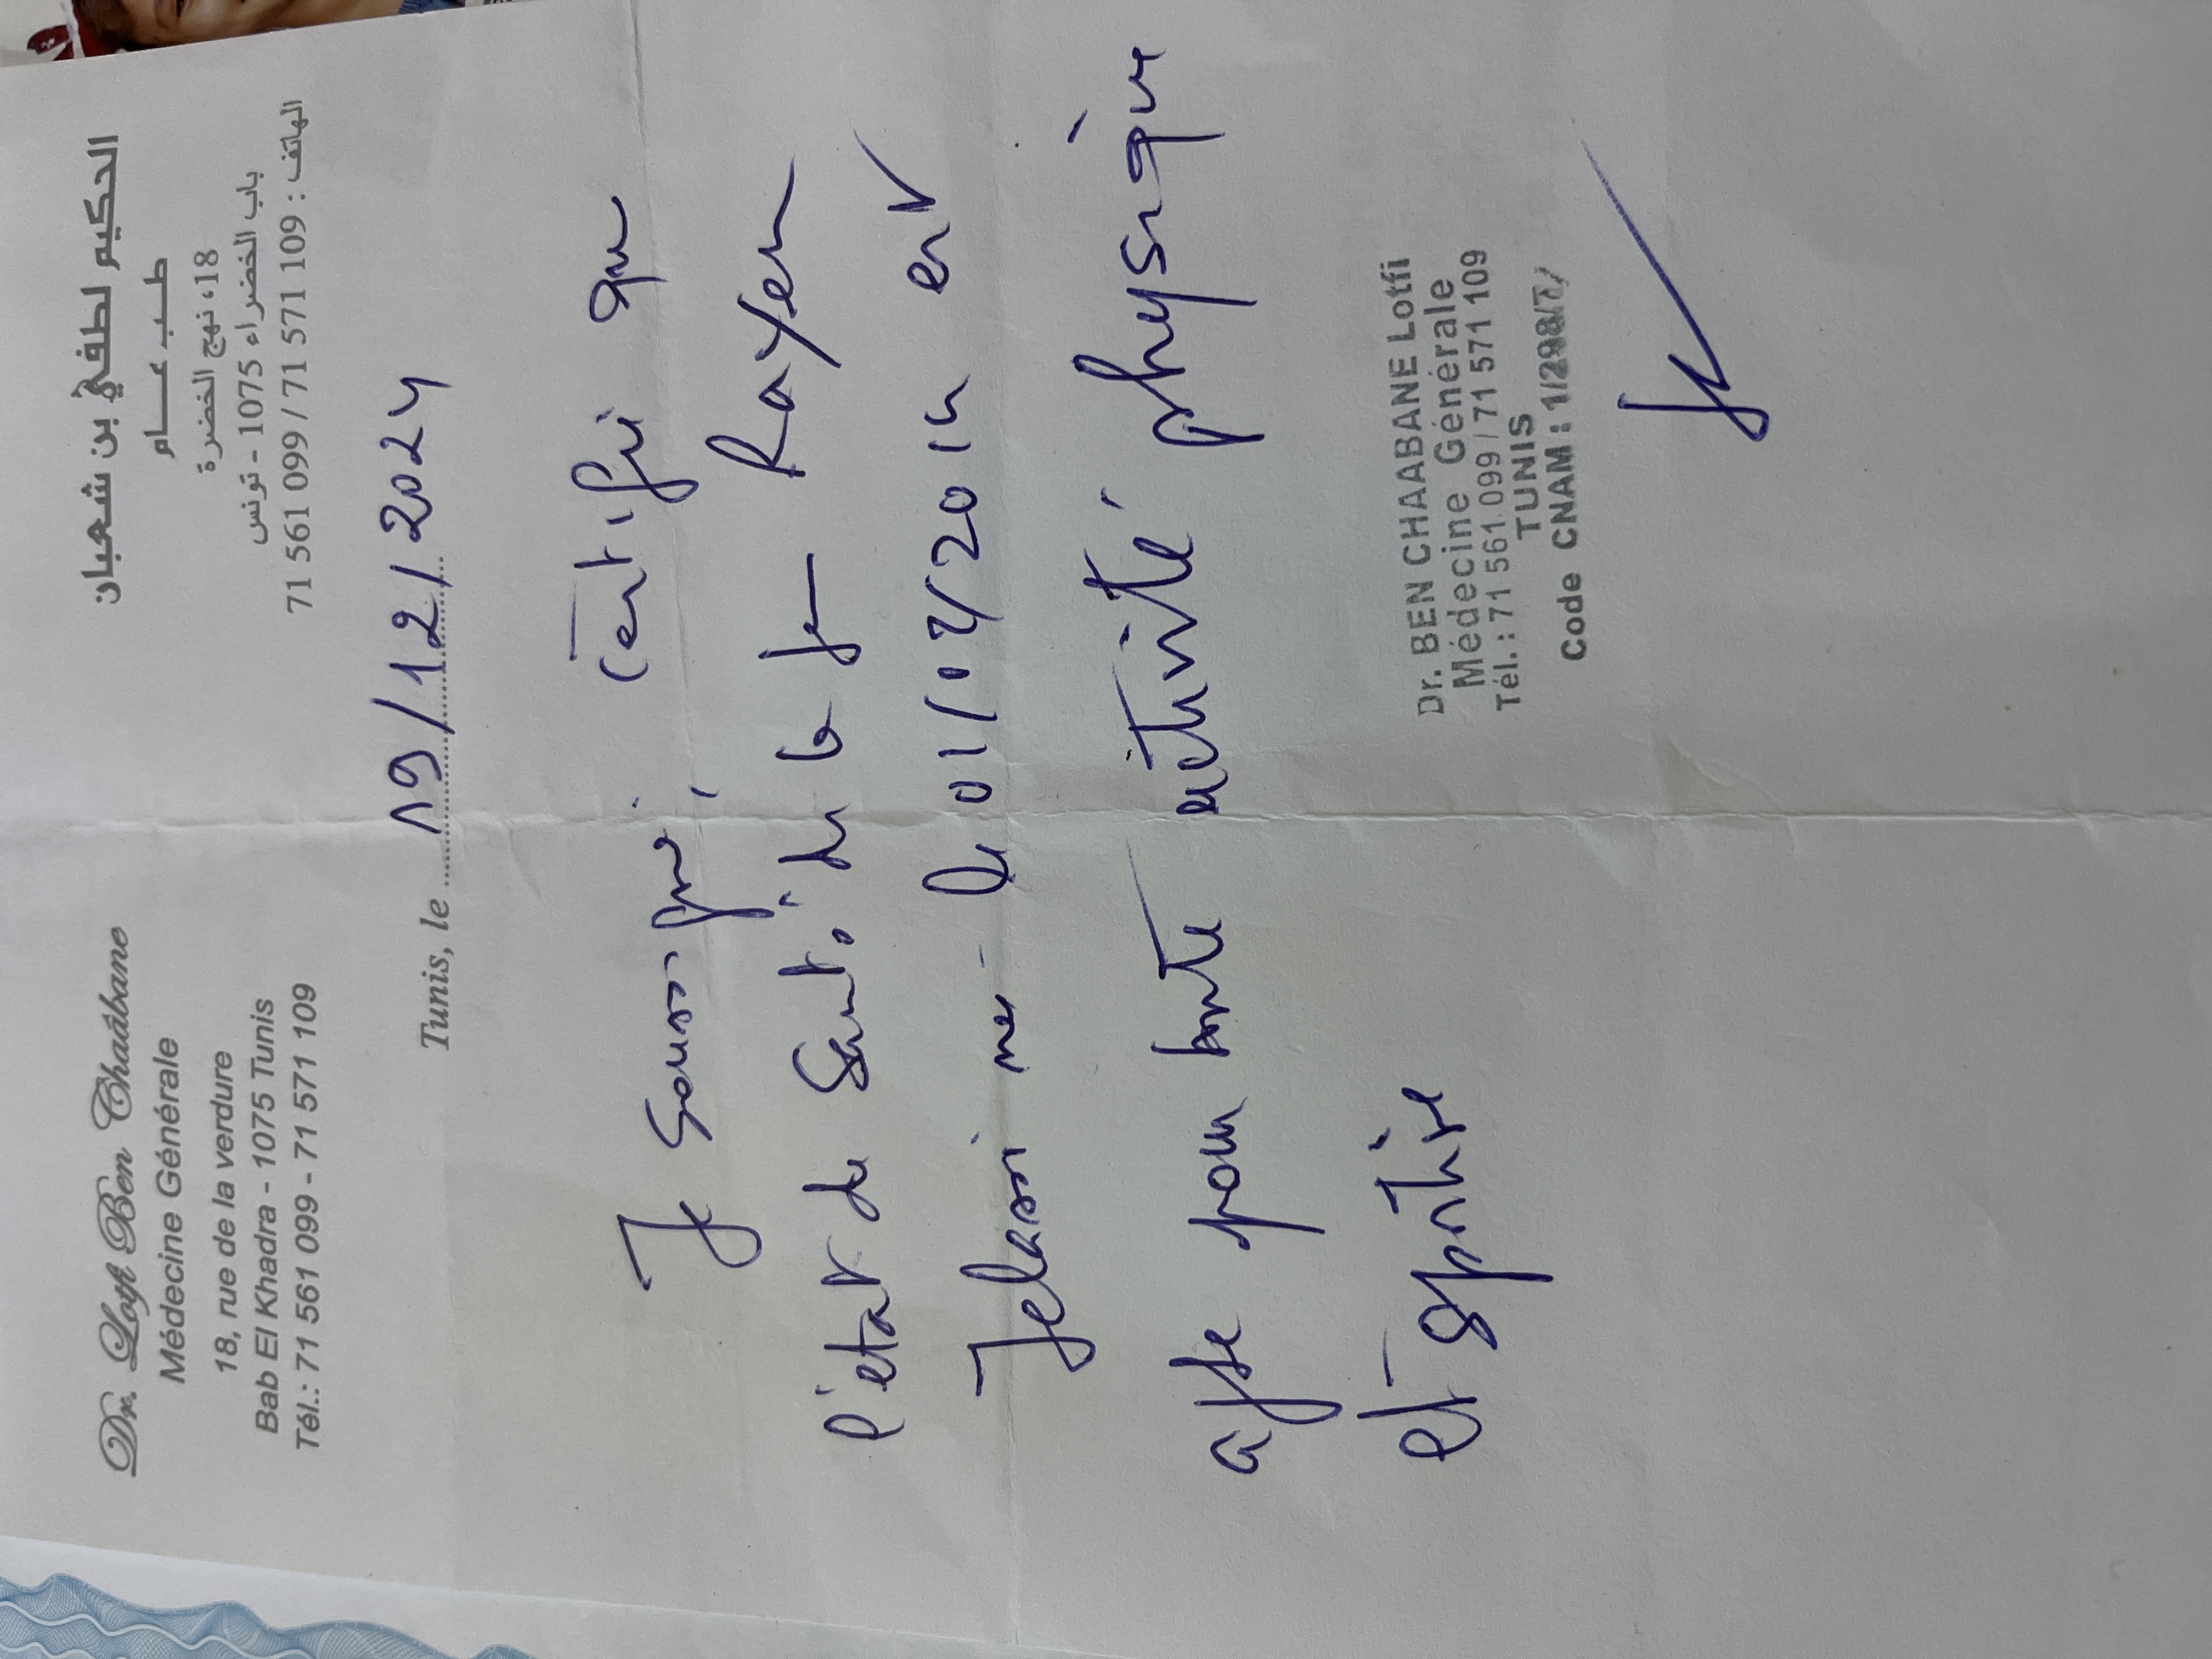 Dr. Lotfi Ben Chaâbane
Médecine Générale
18, rue de la verdure
Bab El Khadra - 1075 Tunis
Tél.: 71 561 099 - 71 571 109
الحكيم لطفي بن شعبان
طب عام
18، نهج الخضرة
باب الخضراء 1075 - تونس
الهاتف : 109 571 71 / 099 561 71
Tunis, le 19/12/2024
Je soussigné certifie que
l'état de santé de
Rayen
Jelassi né le est
apte pour toute activité physique
et sportive
Dr. BEN CHAABANE Lotfi
Médecine Générale
Tél.: 71 561 099 / 71 571 109
TUNIS
Code CNAM : 1/